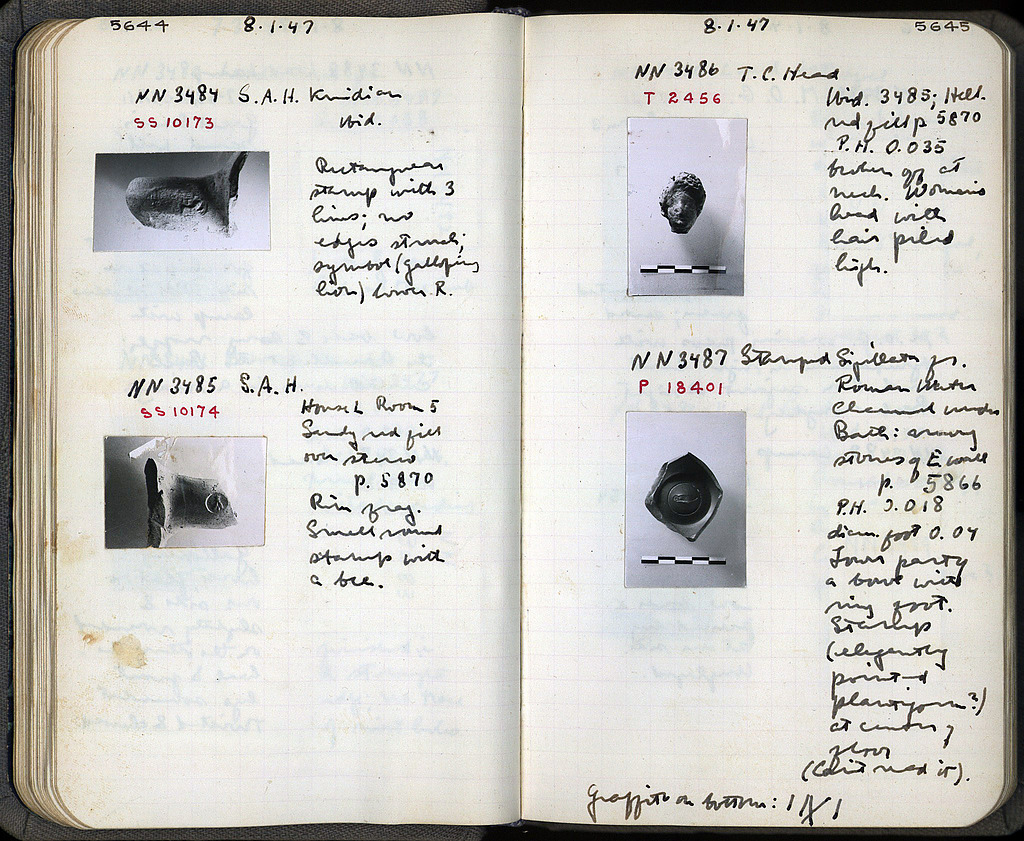 5644
8.1.47
NN 3484 S.A.H. Knidian
SS 10173
Ibid.
Rectangular
stamp with 3
lines; no
edges struck;
symbol (galloping
lion) lower R.
NN 3485 S.A.H.
SS 10174
House L Room 5
Sandy red fill
over stereo
p. 5870
Rim frag.
Small round
stamp with
a bee.
8.1.47
5645
NN 3486 T.C. Head
T 2456
Ibid. 3485; Hell.
red fill p 5870
P.H. 0.035
broken off at
neck. Woman's
head with
hair piled
high.
NN 3487 Stamped Sigillata fr.
P 18401
Roman Water
Channel under
Bath: among
stones of E wall
p. 5866
P.H. 0.018
diam. foot 0.04
Lower part of
a bowl with
ring foot.
Stamp
(elegantly
pointed
plantiform?)
at center of
floor
(Can't read it).
Graffito on bottom: